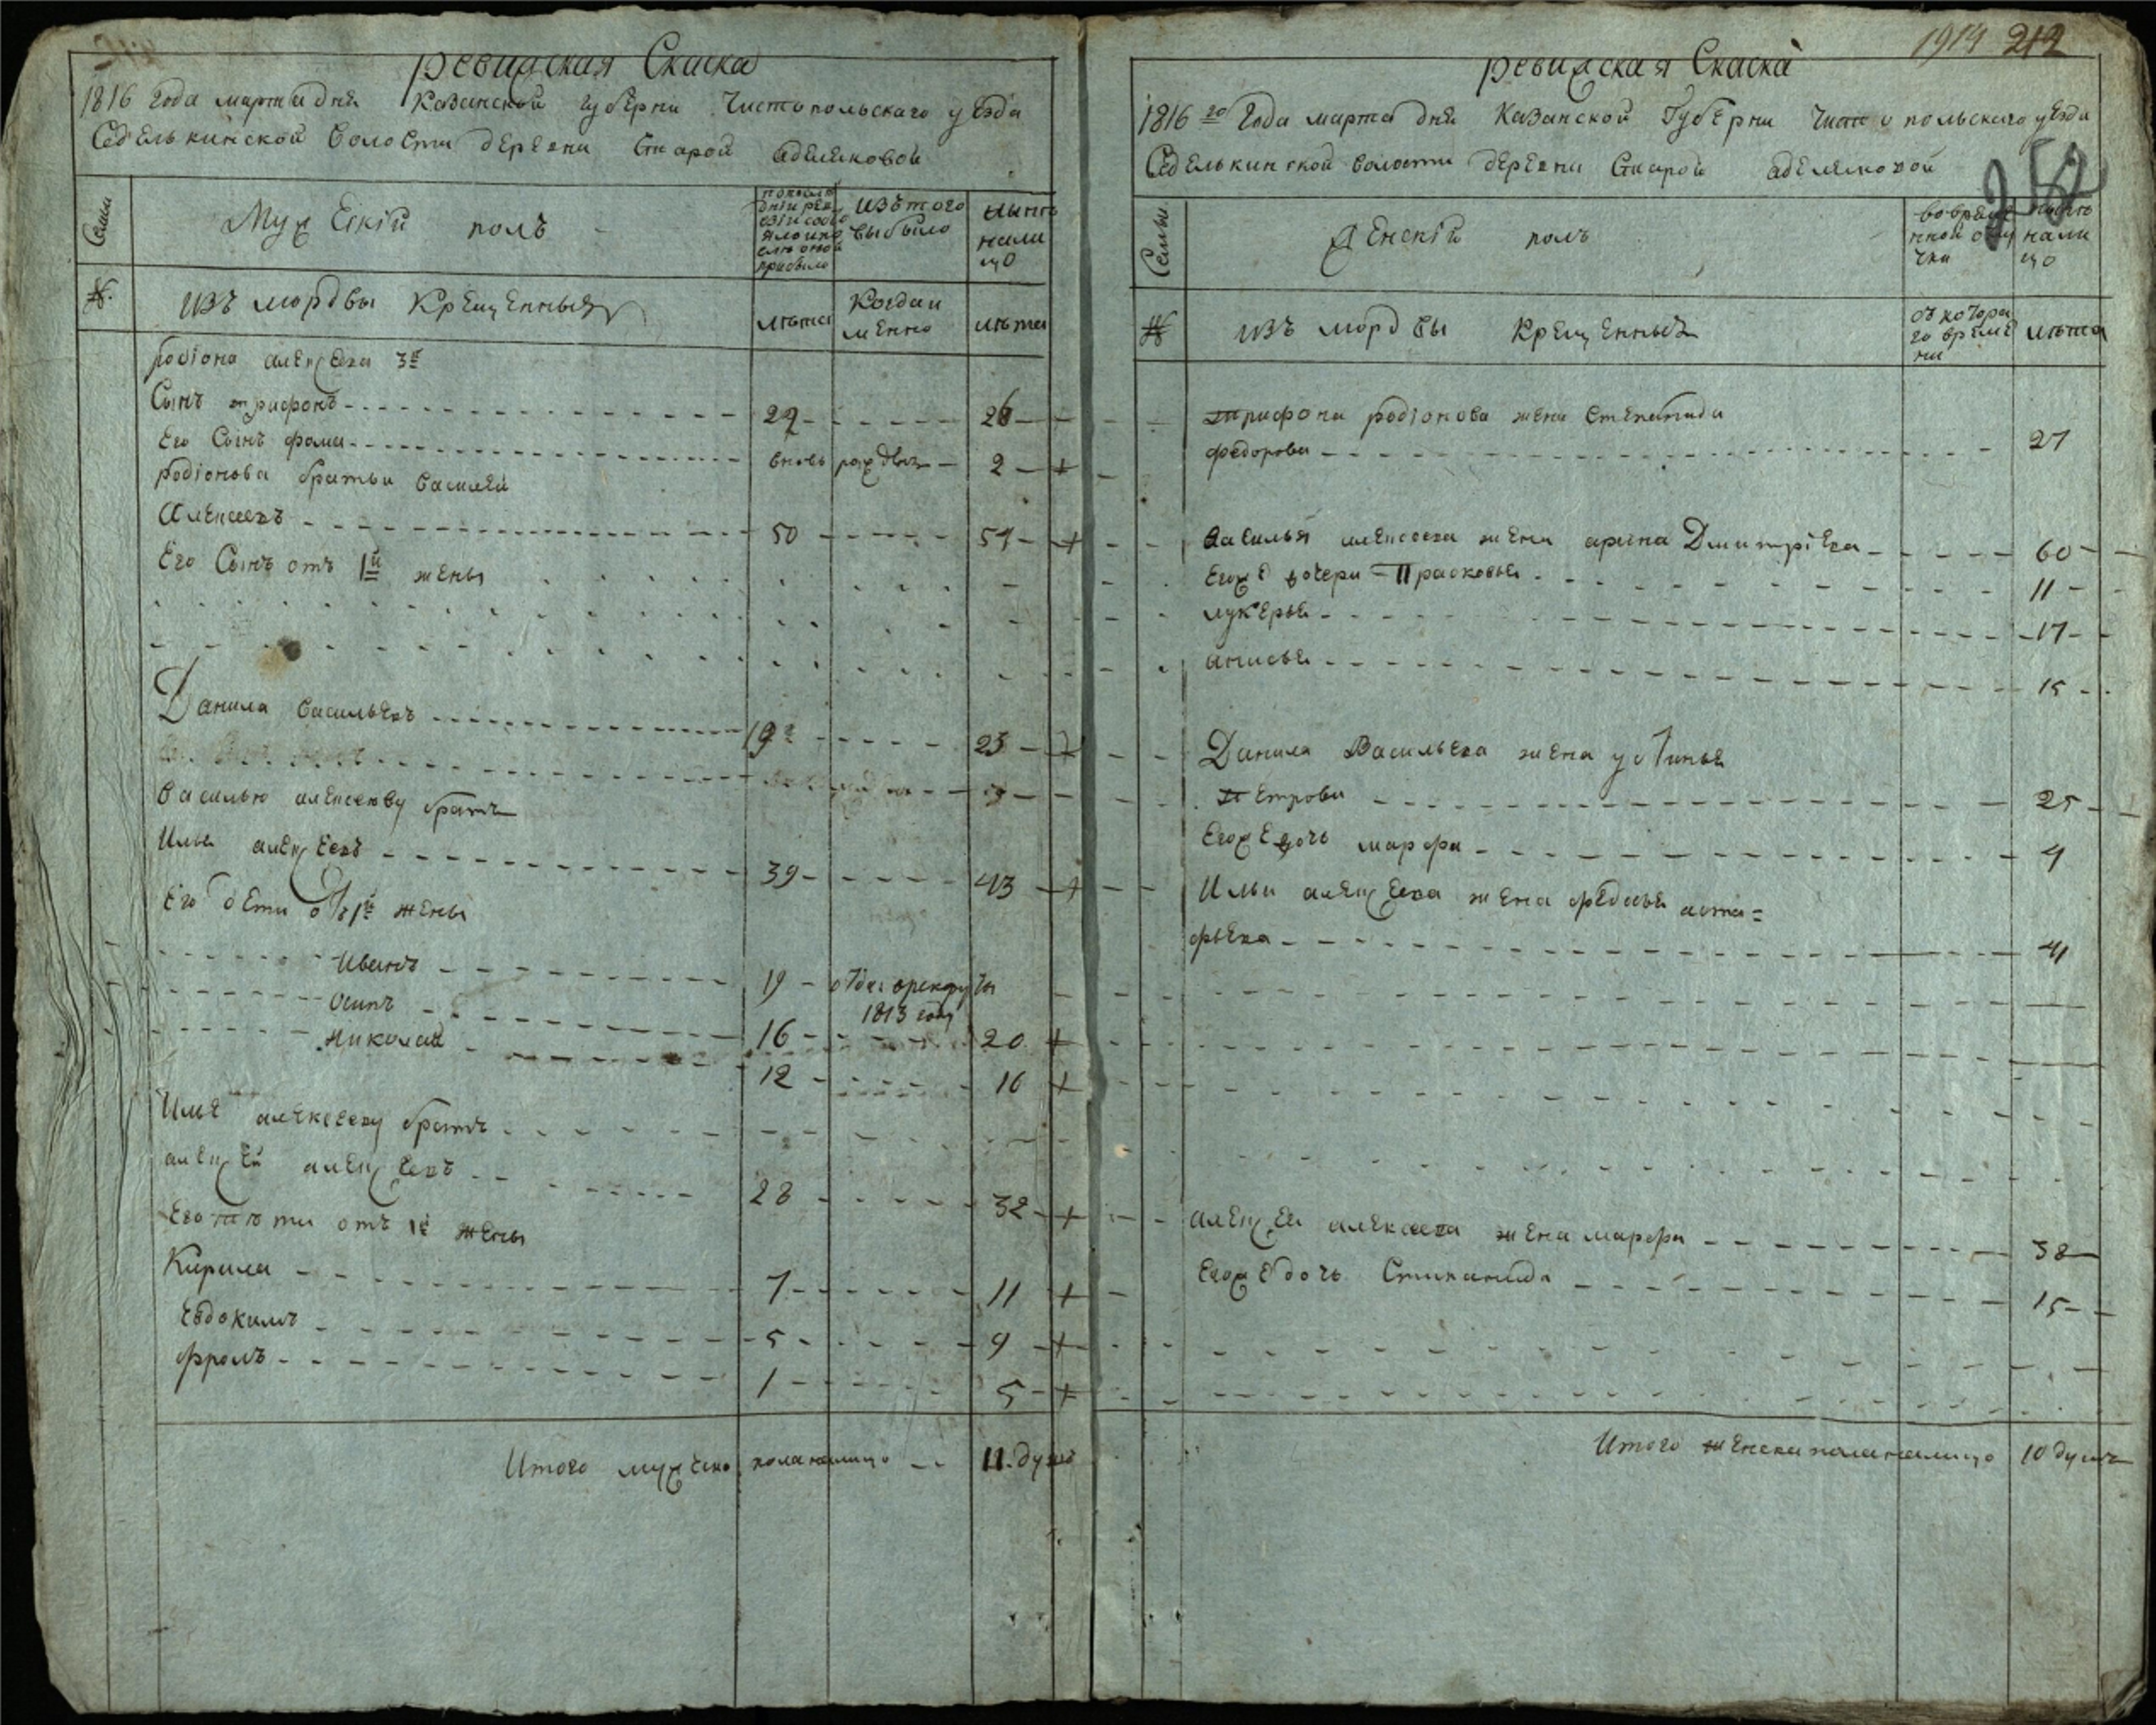 Ревижская Скаска
1816 года марта дня Казанской губерни Чистопольскаго уезда
Седелькинской волости деревни Старой адемяковой
Семьи
Мужескій полъ
по последній ревизіи состояло и после оной прибыло
изъ того выбыло
ныне налицо
№.
изъ мордвы крещенныя
лѣта
когда имѣнно
лѣта
Родіона алексеева 3й
Сынъ трифонъ 22 26
Его Сынъ фома вновь рожден 2
Родіонова братья василей
Алексеевъ 50 54
Его Сынъ отъ 1й жены
Данила васильевъ 19 23
василью алексееву братъ
Илья алексеевъ 39 43
Его дети отъ 1й жены
Иванъ 19 отдан врекруты
1813 году
Осипъ 16 20
Николай 12 16
Илье алексееву братъ
алексей алексеевъ 28 32
Его дѣти отъ 1й жены
Кирила 7 11
Евдокимъ 5 9
фролъ 1 5
Итого мужеска пола налицо 11 душъ
1914 212
Ревижская Скаска
252
1816го года марта дня Казанской Губерни Чистопольскаго уезда
Седелькинской волости деревни Старой адемяковой
Семьи
Женскій полъ
во временной отлучки
ныне налицо
№
изъ мордвы крещенныя
съ котораго времени
лѣта
трифона родіонова жена степанида
федорова 27
василья алексеева жена арина Дмитріева 60
Егоже дочери Прасковья 11
лукерья 17
анисья 15
Данила Васильева жена устинья
Петрова 25
Егоже дочь марфа 4
Ильи алексеева жена федосья аста=
фьева 41
алексея алексеева жена марфа 38
Егоже дочь Стиканида 15
Итого женска пола налицо 10 душъ